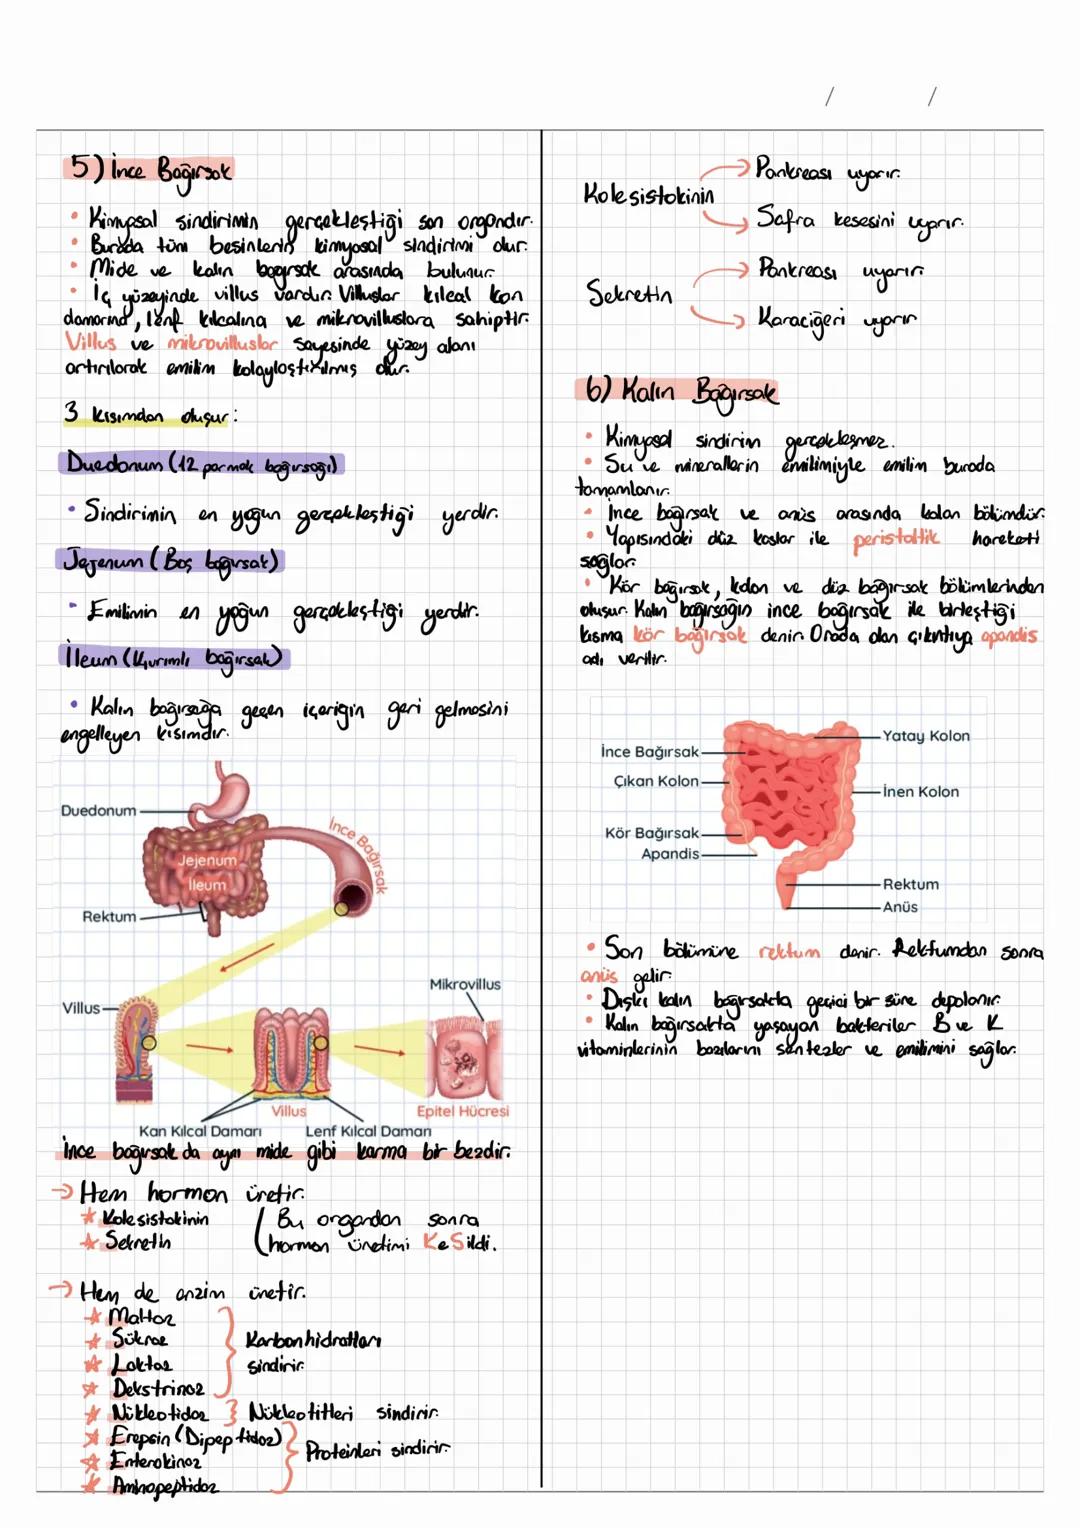 / /
5) İnce Bağırsak
• Kimyasal sindirimin gerçekleştiği son organdır.
• Burada tüm besinlerin kimyasal sindirimi olur.
• Mide ve kalın bağırsak arasında bulunur.
• İç yüzeyinde villus vardır. Villuslar kılcal kan
damarına, lenf kılcalına ve mikrovilluslara sahiptir.
Villus ve mikrovilluslar sayesinde yüzey alanı
artırılarak emilim kolaylaştırılmış olur.
3 kısımdan oluşur:
Duedonum (12 parmak bağırsağı)
• Sindirimin en yoğun gerçekleştiği yerdir.
Jejenum (Boş bağırsak)
• Emilimin en yoğun gerçekleştiği yerdir.
İleum (Kıvrımlı bağırsak)
• Kalın bağırsağa geçen içeriğin geri gelmesini
engelleyen kısımdır.
Duedonum
İnce Bağırsak
Jejenum
İleum
Rektum
Mikrovillus
Villus
Villus
Epitel Hücresi
Kan Kılcal Damarı
Lenf Kılcal Damarı
İnce bağırsak da aynı mide gibi karma bir bezdir.
→ Hem hormon üretir.
★ Kolesistokinin
★ Sekretin
(Bu organdan sonra
hormon üretimi KeSildi.
→ Hem de enzim üretir.
★ Maltaz
★ Sükraz
★ Laktaz
★ Dekstrinaz
} Karbonhidratları
sindirir.
★ Nükleotidaz } Nükleotitleri sindirir.
★ Erepsin (Dipeptidaz)
★ Enterokinaz
★ Aminopeptidaz
} Proteinleri sindirir.
Kolesistokinin
→ Pankreası uyarır.
→ Safra kesesini uyarır.
Sekretin
→ Pankreası uyarır.
→ Karaciğeri uyarır
6) Kalın Bağırsak
• Kimyasal sindirim gerçekleşmez.
• Su ve minerallerin emilimiyle emilim burada
tamamlanır.
• İnce bağırsak ve anüs arasında kalan bölümdür.
• Yapısındaki düz kaslar ile peristaltik hareketi
sağlar.
• Kör bağırsak, kolon ve düz bağırsak bölümlerinden
oluşur. Kalın bağırsağın ince bağırsak ile birleştiği
kısma kör bağırsak denir. Orada olan çıkıntıya apandis
adı verilir.
Yatay Kolon
İnce Bağırsak
Çıkan Kolon
İnen Kolon
Kör Bağırsak
Apandis
Rektum
Anüs
• Son bölümüne rektum denir. Rektumdan sonra
anüs gelir.
• Dışkı kalın bağırsakta geçici bir süre depolanır.
• Kalın bağırsakta yaşayan bakteriler B ve K
vitaminlerinin bazılarını sentezler ve emilimini sağlar.